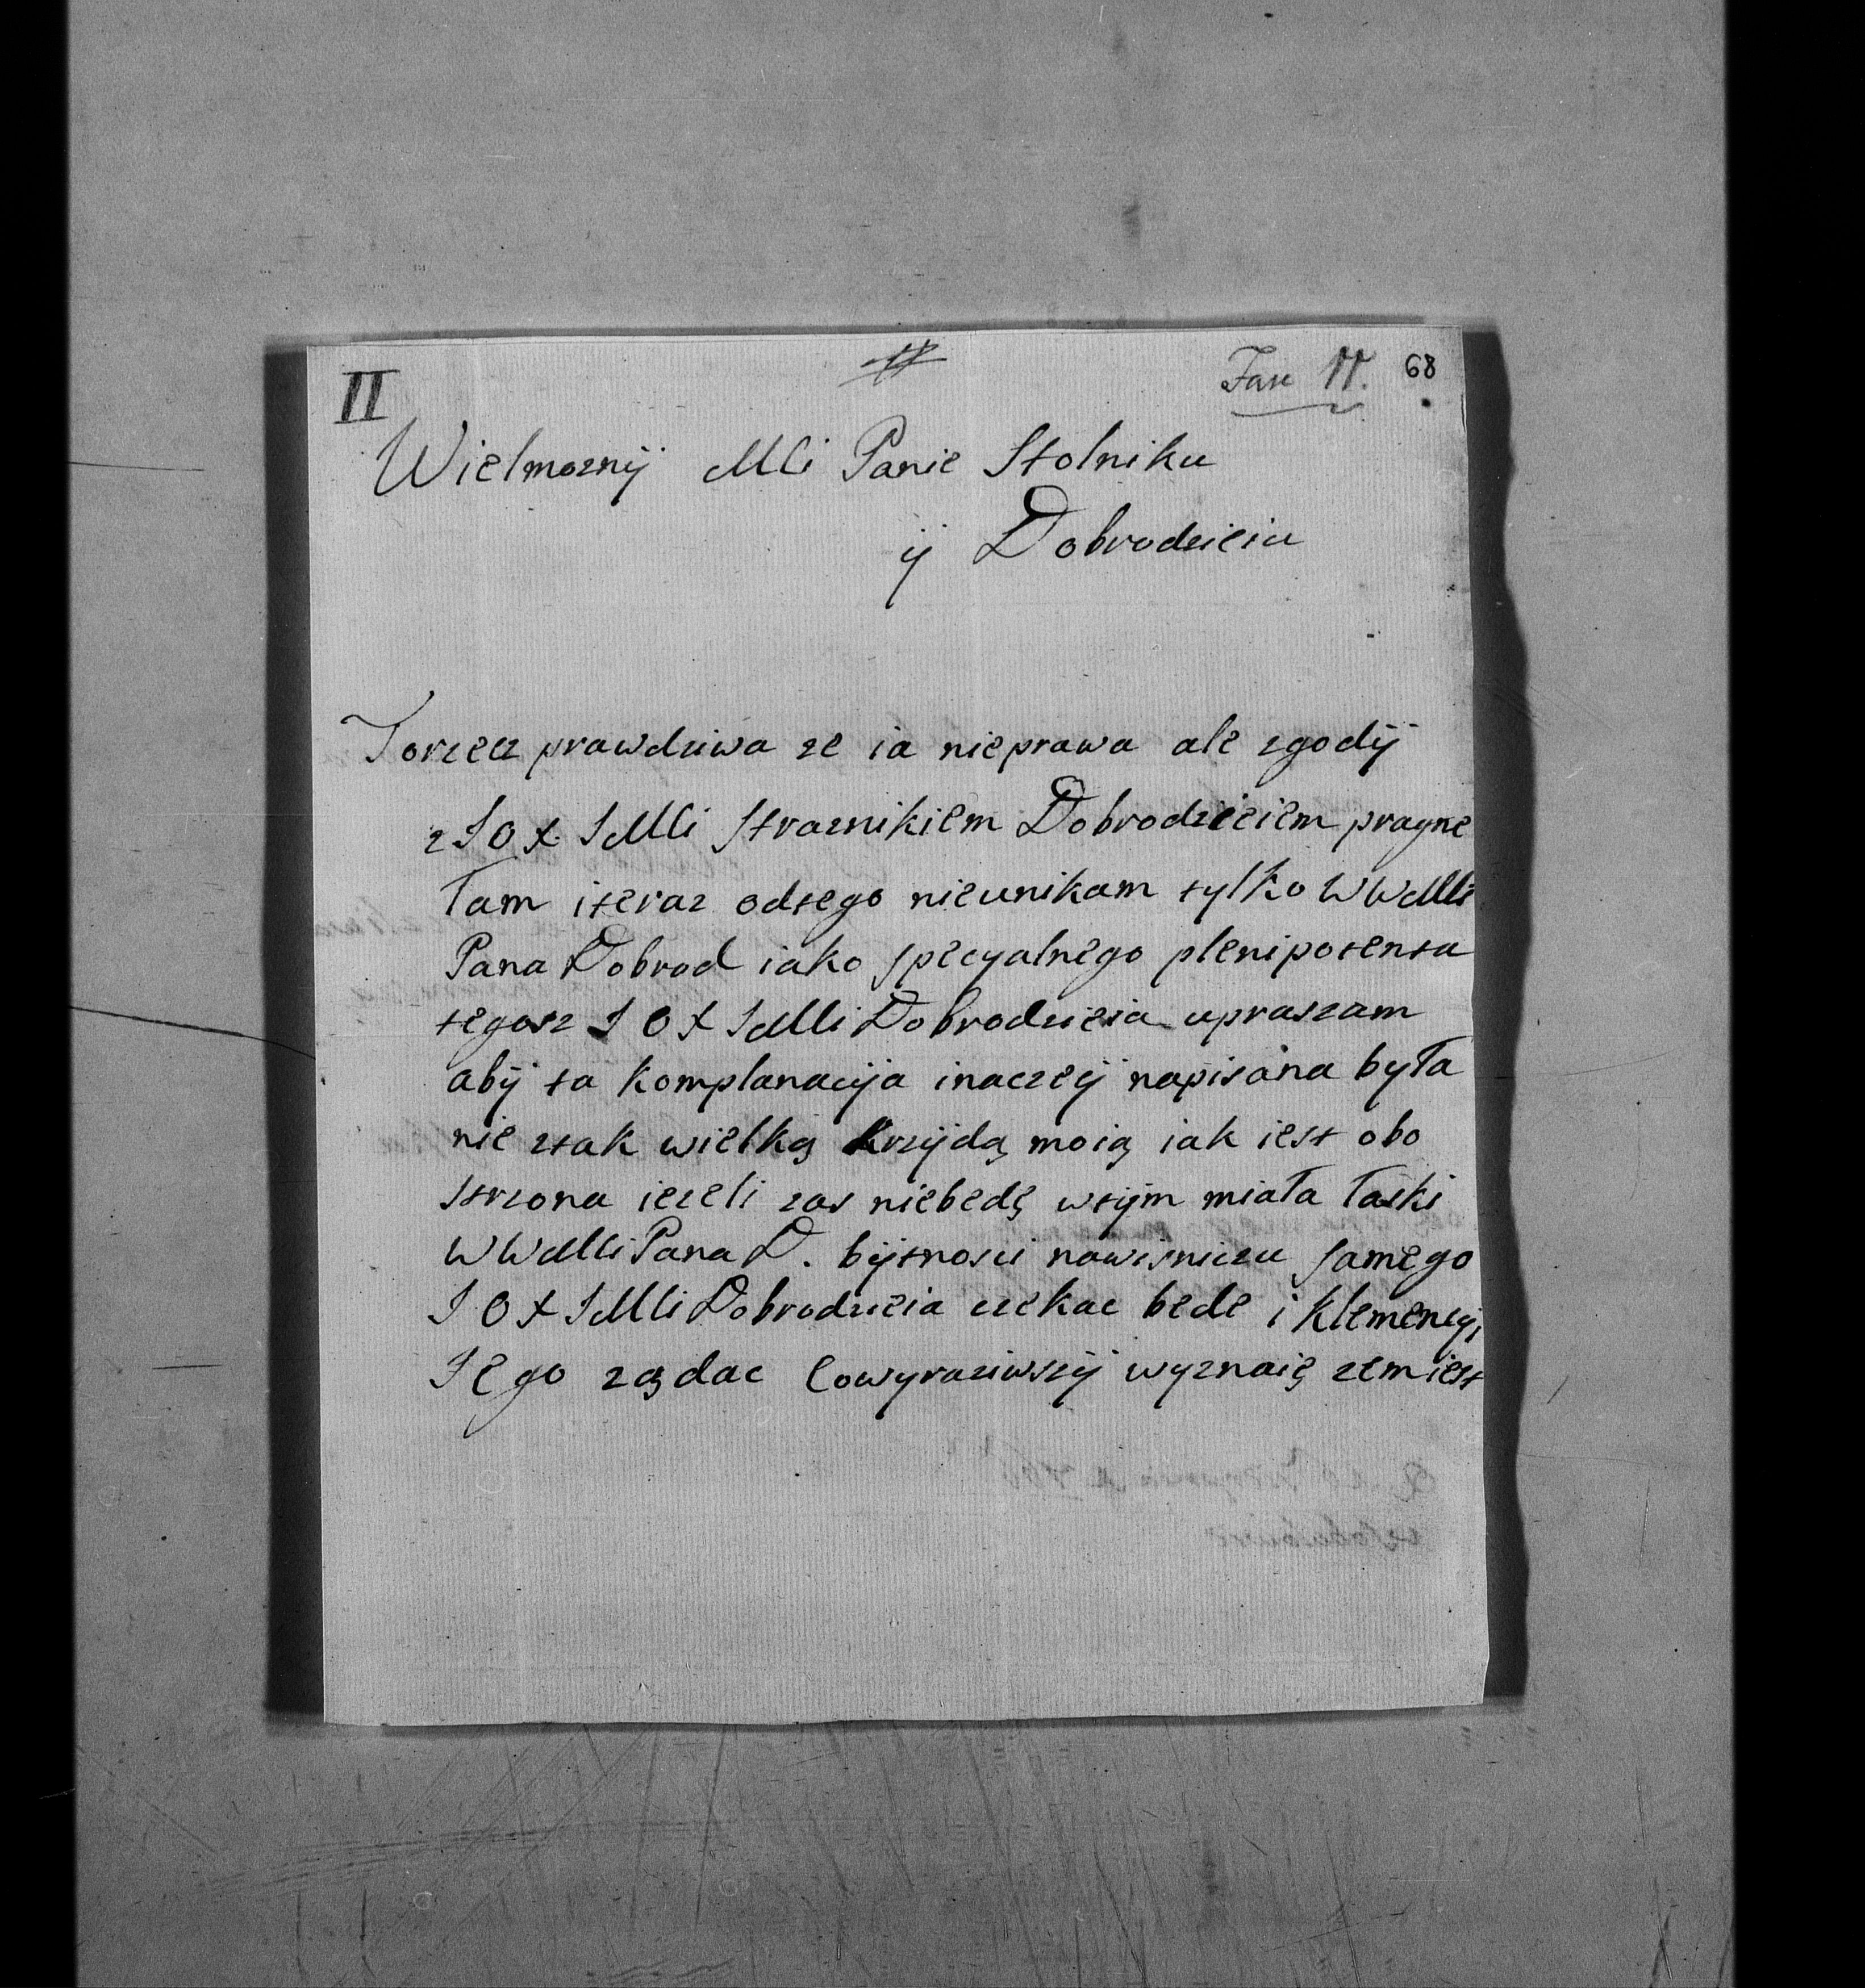 II Fasc 11. 68
Wielmoznÿ Mci Panie Stolniku
ÿ Dobrodzieiu
Torzecz prawdziwa ze ia nieprawa ale zgodÿ
z J O X JMci Straznikiem Dobrodzieiem pragne
łam iteraz odtego nieunikam tylko WWMci
Pana Dobrod iako specyalnego plenipotenta
tegosz J O X JMci Dobrodzieia upraszam
abÿ ta komplanacÿa inaczeÿ napisana była
nie ztak wielką krzÿdą moią iak iest obo
strzona iezeli zas niebedę wtÿm miała łaski
WWMci Pana D. bÿtnosci nawisniczu samego
J O X JMci Dobrodzieia czekac bede i klemencyi
Jego ządac Cowyraziwszÿ wyznaię zem iest